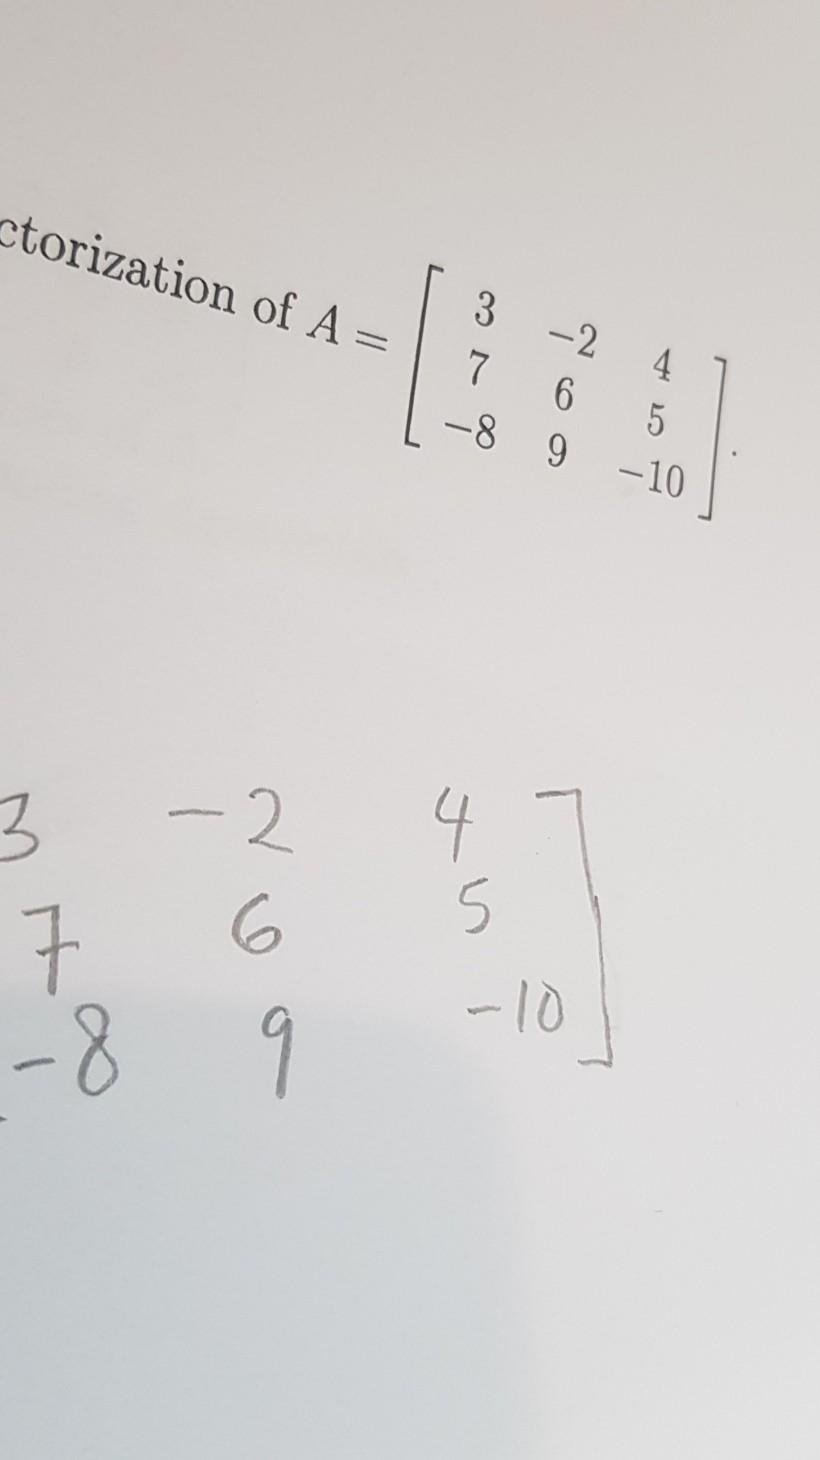 ctorization of A = [ 3 -2 4
7 6 5
-8 9 -10 ].
3 -2 4 ]
7 6 5
-8 9 -10